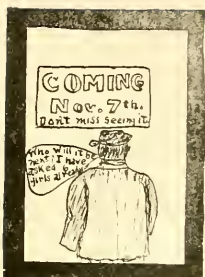 COMING
Nov. 7th.
Don't miss seeing it
Who will it be
next? I have
asked
girls al